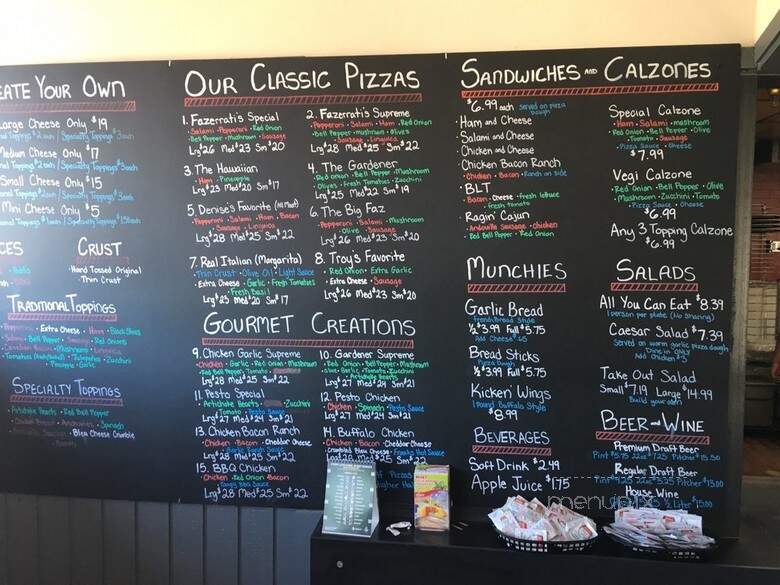 EATE YOUR OWN
Large Cheese Only $19
Medium Cheese Only $17
Small Cheese Only $15
Mini Cheese Only $5
CRUST
Hand Tossed Original
Thin Crust
TRADITIONAL TOPPINGS
Pepperoni • Extra Cheese • Ham • Black Olives
Salami • Bell Pepper • Sausage • Red Onions
Pineapple • Garlic
SPECIALTY TOPPINGS
Artichoke Hearts • Red Bell Pepper
Bleu Cheese Crumble
OUR CLASSIC PIZZAS
1. Fazerrati's Special
Salami • Pepperoni • Red Onion
Bell Pepper • mushroom • Sausage
Lrg $26 Med $23 Sm $20
2. Fazerrati's Supreme
Pepperoni • Salami • Ham • Red Onion
Bell Pepper • mushroom • Olives
Sausage • Linguica
Lrg $28 Med $25 Sm $22
3. The Hawaiian
Ham • Pineapple
Lrg $23 Med $20 Sm $17
4. The Gardener
Red Onion • Bell Pepper • mushroom
Olives • Fresh Tomatoes • Zucchini
Lrg $25 Med $22 Sm $19
5. Denise's Favorite (All Meat)
Pepperoni • Salami • Ham • Bacon
Sausage • Linguica
Lrg $28 Med $25 Sm $22
6. The Big Faz
Pepperoni • Salami • Mushroom
Olive • Sausage
Lrg $26 Med $23 Sm $20
7. Real Italian (Margarita)
Thin Crust • Olive Oil • Light Sauce
Extra Cheese • Garlic • Fresh Tomatoes
Fresh Basil
Lrg $23 Med $20 Sm $17
8. Troy's Favorite
Red Onion • Extra Garlic
Extra Cheese • Sausage
Lrg $26 Med $23 Sm $20
GOURMET CREATIONS
9. Chicken Garlic Supreme
Chicken • Garlic • Red Onion • Mushroom
Red Bell Pepper • Tomato
Lrg $28 Med $25 Sm $22
10. Gardener Supreme
Red Onion • Bell Pepper • Mushroom
Olive • Garlic • Tomato • Zucchini
Artichoke Hearts
Lrg $27 Med $24 Sm $21
11. Pesto Special
Artichoke Hearts • Zucchini
Tomato • Pesto Sauce
Lrg $27 Med $24 Sm $21
12. Pesto Chicken
Chicken • Spinach • Pesto Sauce
Lrg $27 Med $24 Sm $21
13. Chicken Bacon Ranch
Chicken • Bacon • Cheddar Cheese
Garlic Ranch Sauce
Lrg $28 Med $25 Sm $22
14. Buffalo Chicken
Chicken • Bacon • Cheddar Cheese
Crumbled Bleu Cheese • Franks Hot Sauce
15. BBQ Chicken
Chicken • Red Onion • Bacon
Tangy BBQ Sauce
Lrg $28 Med $25 Sm $22
SANDWICHES AND CALZONES
$6.99 each served on pizza dough
• Ham and Cheese
• Salami and Cheese
• Chicken and Cheese
• Chicken Bacon Ranch
Chicken • Bacon • Ranch on side
• BLT
Bacon • Cheese • fresh lettuce
fresh tomato
• Ragin' Cajun
Andouille Sausage • chicken
Red Bell Pepper • Red Onion
Special Calzone
Ham • Salami • mushroom
Red Onion • Bell Pepper • Olive
Tomato • Sausage
Pizza Sauce • Cheese
$7.99
Vegi Calzone
Red Onion • Bell Pepper • Olive
Mushroom • Zucchini • Tomato
Pizza Sauce • Cheese
$6.99
Any 3 Topping Calzone
$6.99
MUNCHIES
Garlic Bread
French Bread Style
½ $3.99 Full $5.75
Add Cheese
Bread Sticks
½ $3.99 Full $5.75
Kicken' Wings
1 Pound Buffalo Style
$8.99
BEVERAGES
Soft Drink $2.49
Apple Juice $1.75
SALADS
All You Can Eat $8.39
1 person per plate (No Sharing)
Caesar Salad $7.39
Served on warm garlic pizza dough
Dine in ONLY
Add Chicken
Take Out Salad
Small $7.19 Large $14.99
Build your own
BEER AND WINE
Premium Draft Beer
Pint $5.75 22oz $7.25 Pitcher $15.50
Regular Draft Beer
Pint $4.25 22oz $5.25 Pitcher $13.00
House Wine
½ Liter $15.00
menupix